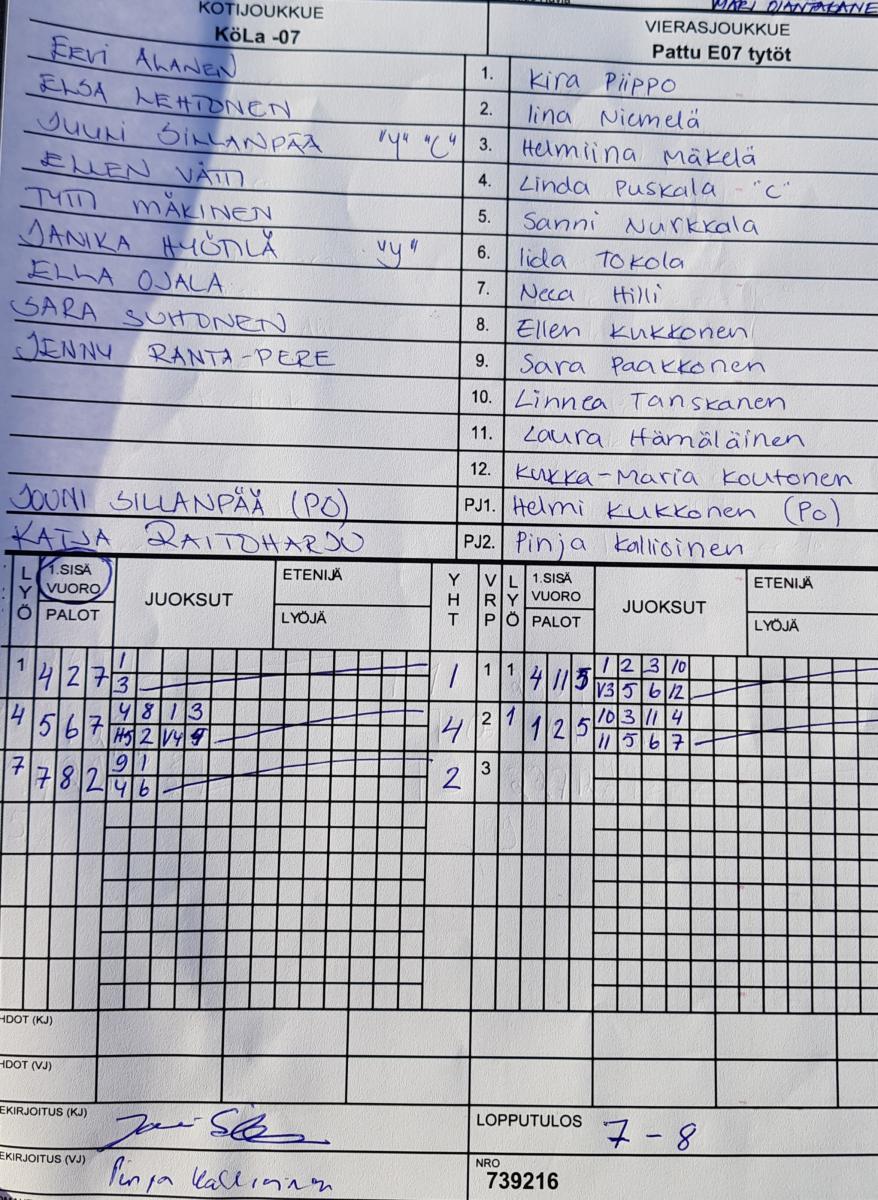 MARI OJANTAKANE
KOTIJOUKKUE
KöLa -07
VIERASJOUKKUE
Pattu E07 tytöt
EEVI ALANEN 1. Kira Piippo
ELSA LEHTONEN 2. Iina Niemelä
JUUNI SILLANPÄÄ "V" "C" 3. Helmiina Mäkelä
ELLEN VÄTTI 4. Linda Puskala "C"
TYTTI MÄKINEN 5. Sanni Nurkkala
JANIKA HYÖTILÄ "V" 6. Iida Tokola
ELLA OJALA 7. Neea Hilli
SARA SUHONEN 8. Ellen Kukkonen
JENNY RANTA-PERE 9. Sara Paakkonen
10. Linnea Tanskanen
11. Laura Hämäläinen
12. Kukka-Maria Koutonen
JOUNI SILLANPÄÄ (PO) PJ1. Helmi Kukkonen (Po)
KATJA RAITOHARJU PJ2. Pinja Kallioinen
LYÖ 1.SISÄ VUORO PALOT JUOKSUT ETENIJÄ LYÖJÄ YHT VRP LYÖ 1.SISÄ VUORO PALOT JUOKSUT ETENIJÄ LYÖJÄ
1 4 2 7 1 1 1 1 4 11 5 1 2 3 10
3 V3 5 6 12
4 5 6 7 4 8 1 3 4 2 1 1 2 5 10 3 11 4
H5 2 V4 9 11 5 6 7
7 7 8 2 9 1 2 3
4 6
HDOT (KJ)
HDOT (VJ)
EKIRJOITUS (KJ) LOPPUTULOS 7 - 8
EKIRJOITUS (VJ) Pinja Kallioinen NRO
739216